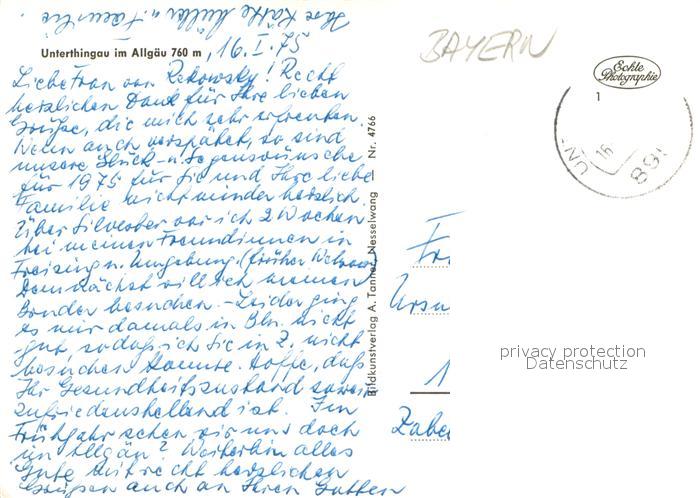 Unterthingau im Allgäu 760 m, 16. I. 75
Liebe Frau von Rekowsky! Recht
herzlichen Dank für Ihre lieben
Grüße, die mich sehr erfreuten.
Wenn auch verspätet, so sind
unsere Glück- u. Segenswünsche
für 1975 für Sie und Ihre liebe
Familie nicht minder herzlich.
Über Silvester war ich 2 Wochen
bei meinen Freundinnen in
Freising u. Umgebung. (früher
Demnächst will ich meinen
Bruder besuchen. - Leider ging
es mir damals in Bln. nicht
gut, sodaß ich Sie in Z. nicht
besuchen konnte. Hoffe, daß
Ihr Gesundheitszustand soweit
zufriedenstellend ist. Im
Frühjahr sehen wir uns doch
im Allgäu? Weiterhin alles
Gute mit recht herzlichen
Grüßen auch an Ihren Gatten
Ihre Käthe Müller u. Familie.
Bildkunstverlag A. Tanner, Nesselwang Nr. 4766
BAYERN
Echte
Photographie
1
16
UN
891
Fr
Ursu
1
Zabe
privacy protection
Datenschutz